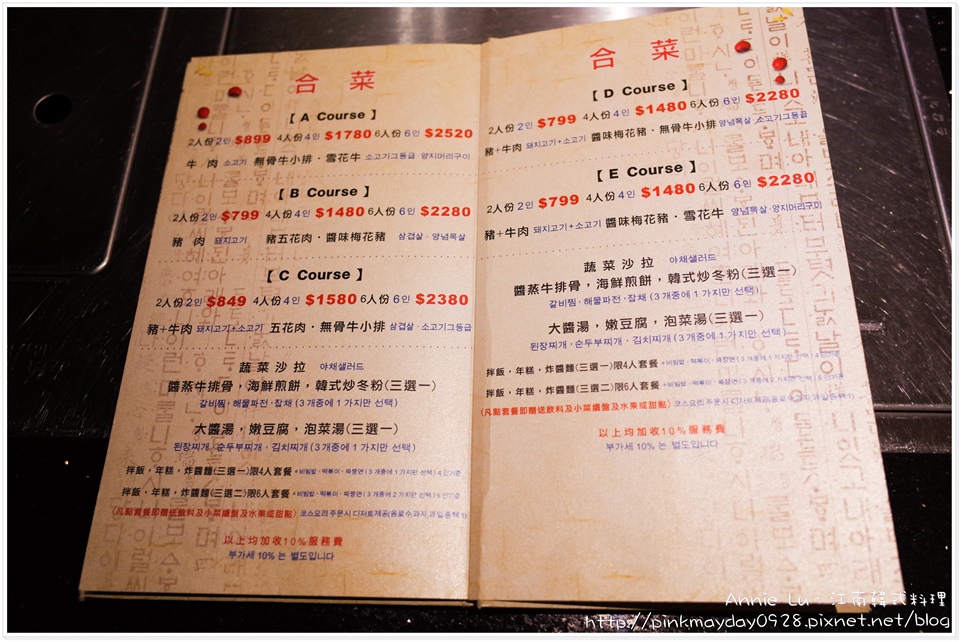 合菜
【 A Course 】
2人份 2인 $899 4人份 4인 $1780 6人份 6인 $2520
牛 肉 소고기 無骨牛小排 · 雪花牛 소고기그등급 · 양지머리구이
【 B Course 】
2人份 2인 $799 4人份 4인 $1480 6人份 6인 $2280
豬 肉 돼지고기 豬五花肉 · 醬味梅花豬 삼겹살 · 양념목살
【 C Course 】
2人份 2인 $849 4人份 4인 $1580 6人份 6인 $2380
豬+牛肉 돼지고기+소고기 五花肉 · 無骨牛小排 삼겹살 · 소고기그등급
蔬菜沙拉 야채샐러드
醬蒸牛排骨，海鮮煎餅，韓式炒冬粉(三選一)
갈비찜 · 해물파전 · 잡채 (3개중에 1가지만 선택)
大醬湯，嫩豆腐，泡菜湯(三選一)
된장찌개 · 순두부찌개 · 김치찌개 (3개중에 1가지만 선택)
拌飯，年糕，炸醬麵(三選一)限4人套餐 +비빔밥 · 떡볶이 · 짜장면 (3개중에 1가지만 선택) 4인기준
拌飯，年糕，炸醬麵(三選二)限6人套餐 +비빔밥 · 떡볶이 · 짜장면 (3개중에 2가지만 선택) 6인기준
(凡點套餐即贈送飲料及小菜續盤及水果或甜點) 코스요리 주문시 디저트제공(음료수,과자,과일중택1)
以上均加收10%服務費
부가세 10% 는 별도입니다
合菜
【 D Course 】
2人份 2인 $799 4人份 4인 $1480 6人份 6인 $2280
豬+牛肉 돼지고기+소고기 醬味梅花豬 · 無骨牛小排 양념목살 · 소고기그등급
【 E Course 】
2人份 2인 $799 4人份 4인 $1480 6人份 6인 $2280
豬+牛肉 돼지고기+소고기 醬味梅花豬 · 雪花牛 양념목살 · 양지머리구이
蔬菜沙拉 야채샐러드
醬蒸牛排骨，海鮮煎餅，韓式炒冬粉(三選一)
갈비찜 · 해물파전 · 잡채 (3개중에 1가지만 선택)
大醬湯，嫩豆腐，泡菜湯(三選一)
된장찌개 · 순두부찌개 · 김치찌개 (3개중에 1가지만 선택)
拌飯，年糕，炸醬麵(三選一)限4人套餐 +비빔밥 · 떡볶이 · 짜장면 (3개중에 1가지만 선택) 4인기준
拌飯，年糕，炸醬麵(三選二)限6人套餐 +비빔밥 · 떡볶이 · 짜장면 (3개중에 2가지만 선택) 6인기준
(凡點套餐即贈送飲料及小菜續盤及水果或甜點) 코스요리 주문시 디저트제공(음료수,과자,과일중택1)
以上均加收10%服務費
부가세 10% 는 별도입니다
Annie Lu · 江南韓式料理
http://pinkmayday0928.pixnet.net/blog